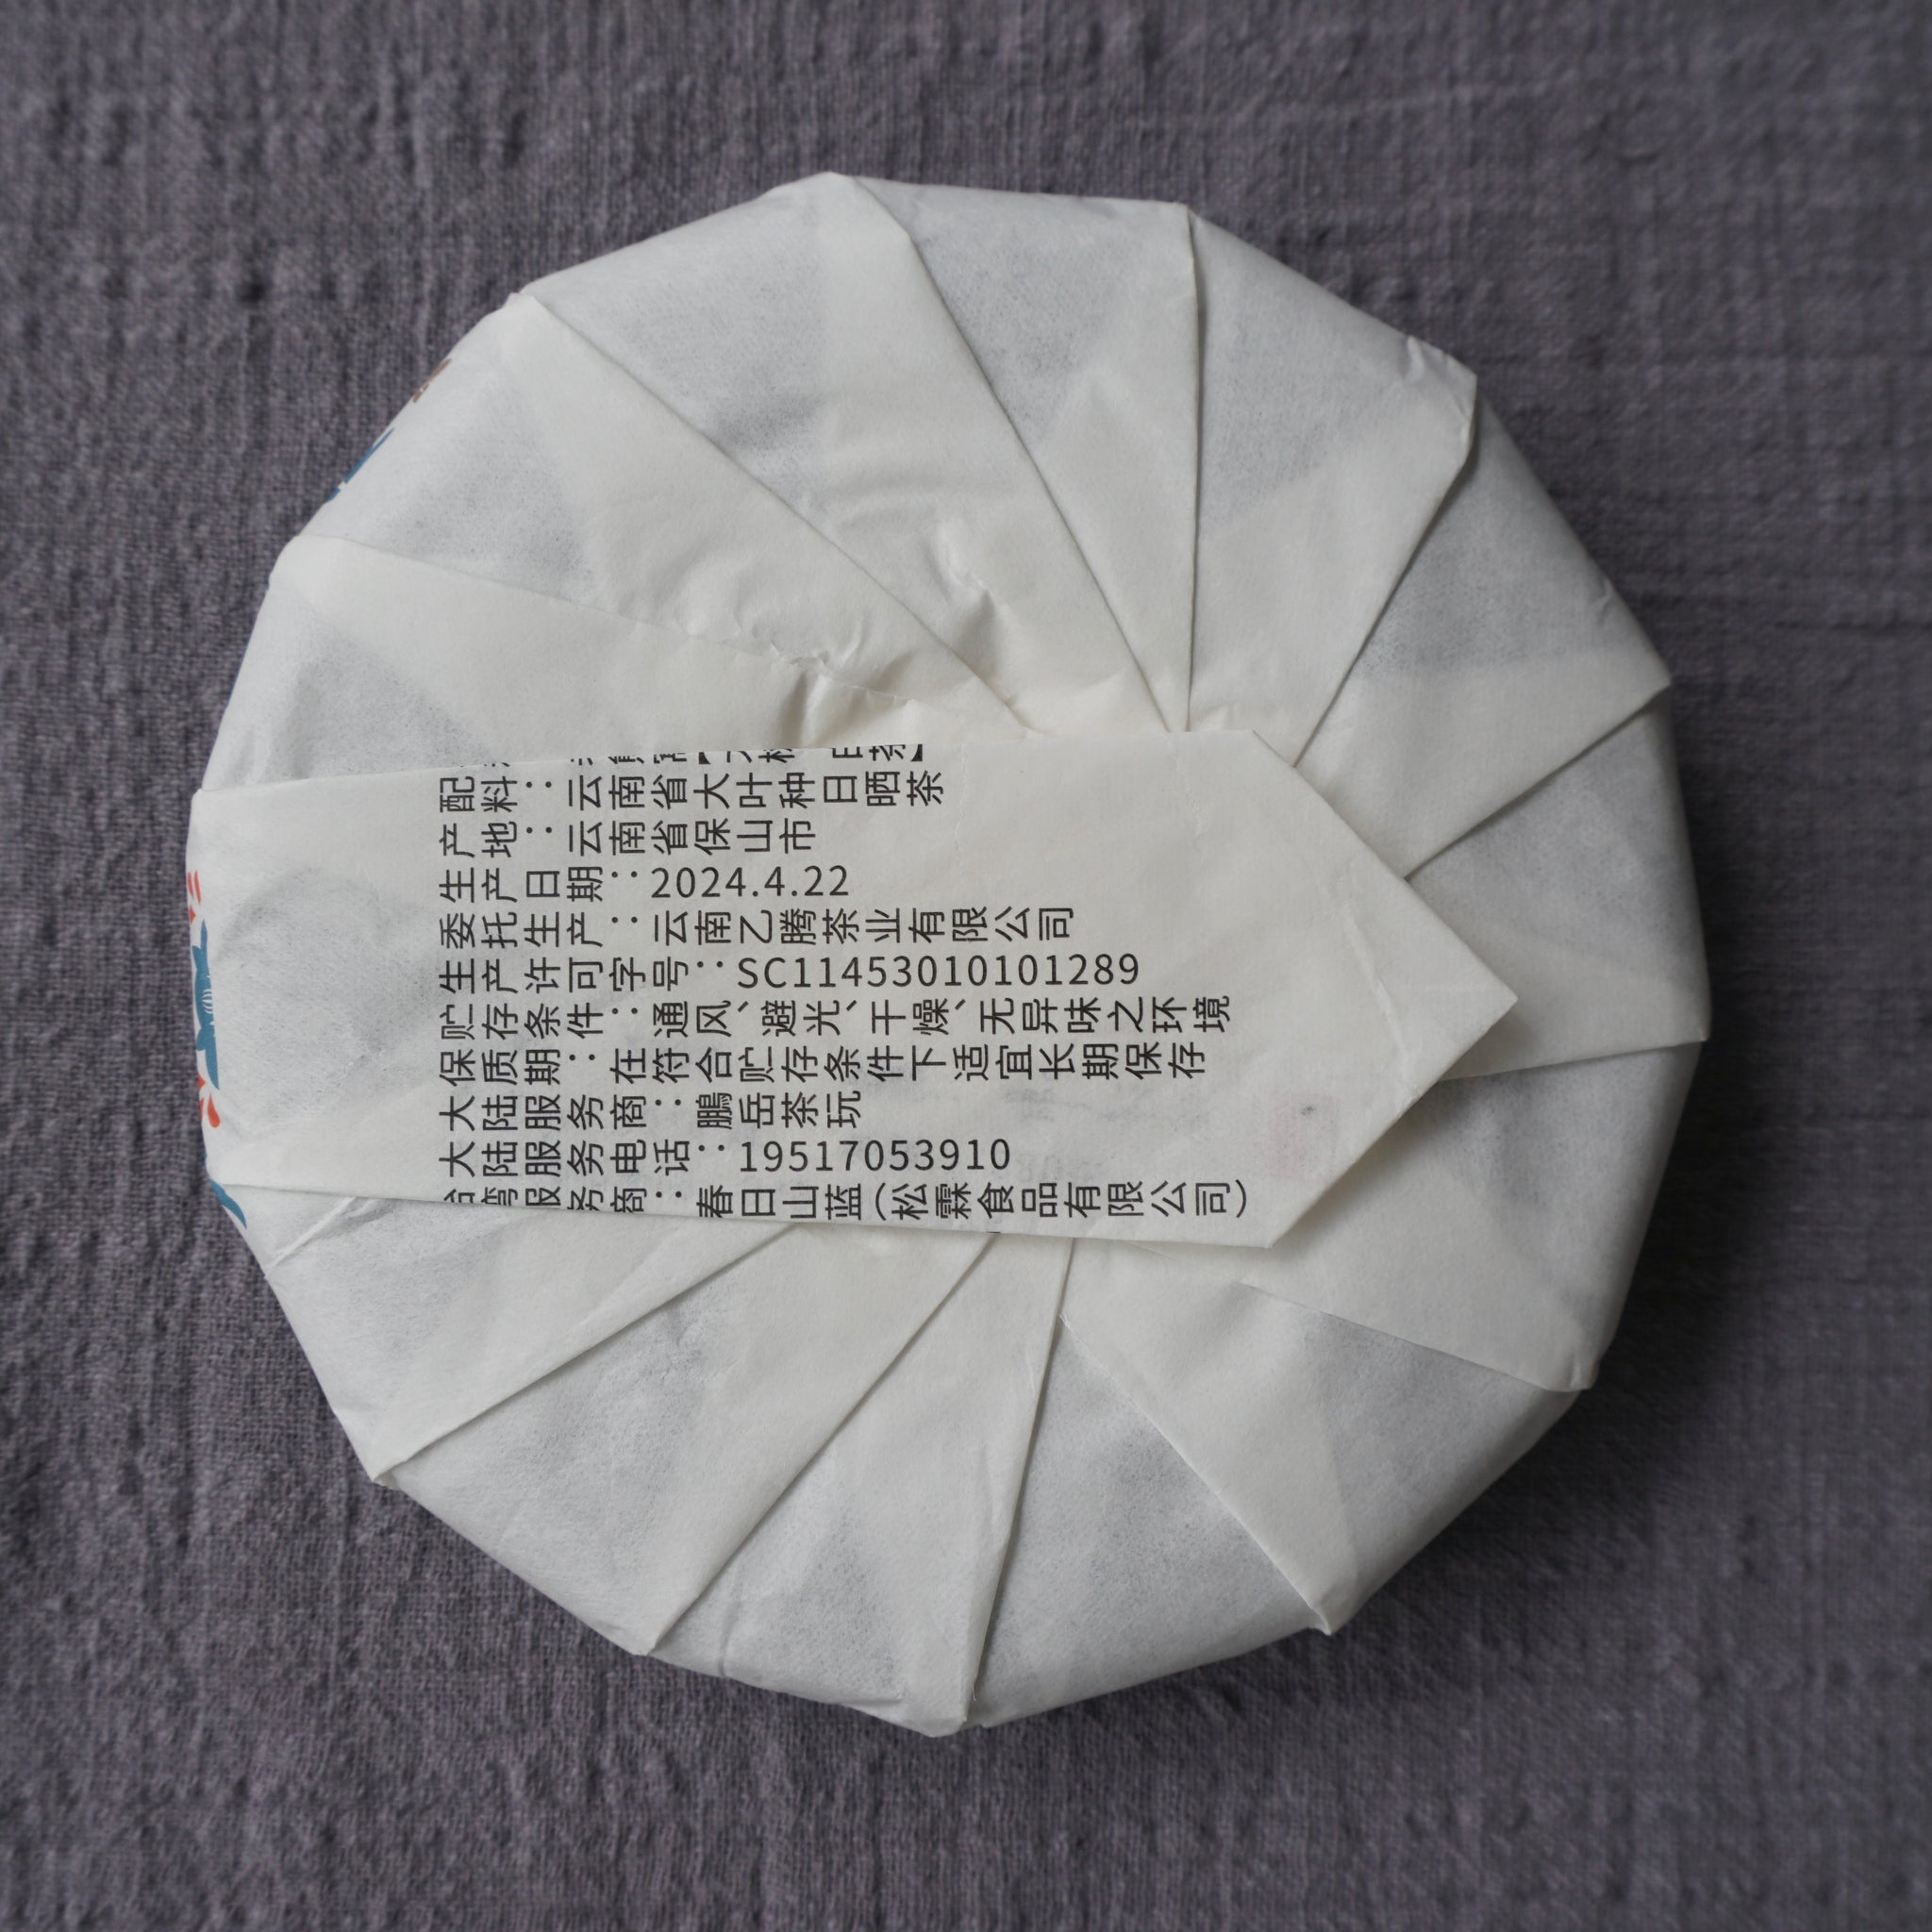 配料：云南省大叶种日晒茶
产地：云南省保山市
生产日期：2024.4.22
委托生产：云南乙腾茶业有限公司
生产许可字号：SC11453010101289
贮存条件：通风、避光、干燥、无异味之环境
保质期：在符合贮存条件下适宜长期保存
大陆服务商：鵬岳茶玩
大陆服务电话：19517053910
台湾服务商：春日山蓝(松霖食品有限公司)